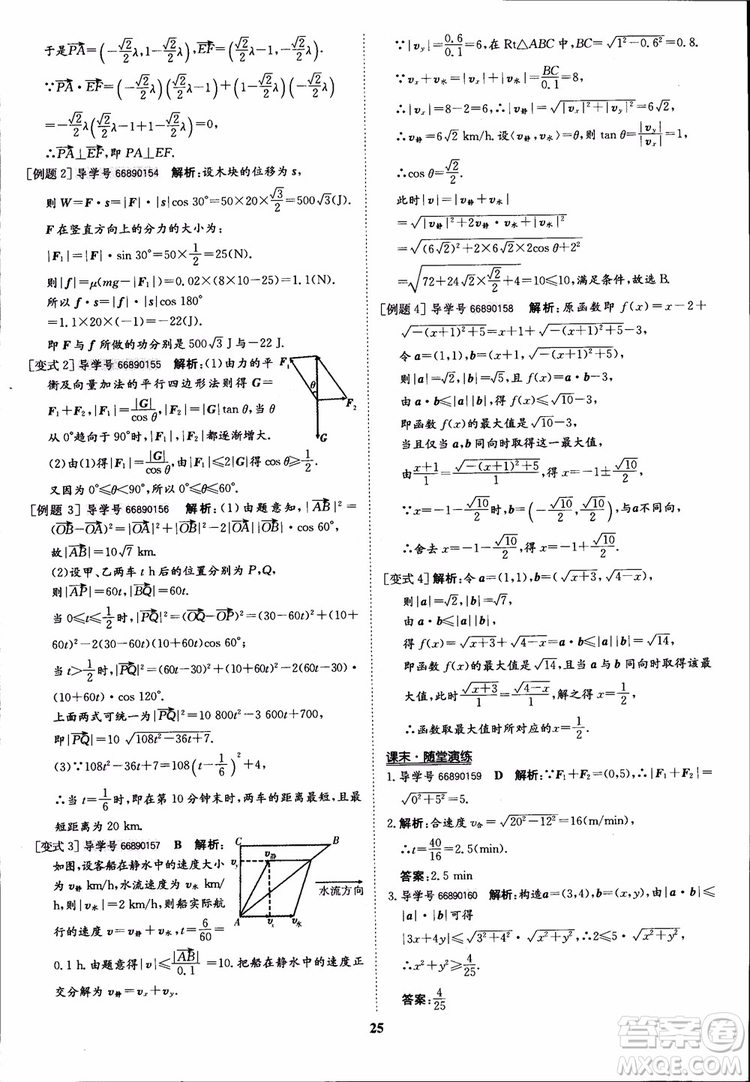 于是PA=(-√2/2 λ, 1-√2/2 λ), EF=(√2/2 λ-1, -√2/2 λ).
∵PA·EF=(-√2/2 λ)(√2/2 λ-1)+(1-√2/2 λ)(-√2/2 λ)
=-√2/2 λ(√2/2 λ-1+1-√2/2 λ)=0,
∴PA⊥EF,即 PA⊥EF.
[例题 2] 导学号 66890154 解析:设木块的位移为 s,
则 W=F·s=|F|·|s|cos 30°=50×20×√3/2=500√3(J).
F 在竖直方向上的分力的大小为:
|F₁|=|F|·sin 30°=50×1/2=25(N).
则|f|=μ(mg-|F₁|)=0.02×(8×10-25)=1.1(N).
所以 f·s=|f|·|s|cos 180°
=1.1×20×(-1)=-22(J).
即 F 与 f 所做的功分别是 500√3 J 与-22 J.
[变式 2] 导学号 66890155 解析:(1)由力的平
衡及向量加法的平行四边形法则得 G=
F₁+F₂,|F₁|=|G|/cos θ,|F₂|=|G|tan θ,当 θ
从 0°趋向于 90°时,|F₁|,|F₂|都逐渐增大.
(2)由(1)得|F₁|=|G|/cos θ,|F₁|≤2|G|得 cos θ≥1/2.
又因为 0°≤θ<90°,所以 0°≤θ≤60°.
F₁
θ
F₂
G
[例题 3] 导学号 66890156 解析:(1)由题意知,|AB|²=
(OB-OA)²=|OA|²+|OB|²-2|OA||OB|·cos 60°,
故|AB|=10√7 km.
(2)设甲、乙两车 t h 后的位置分别为 P,Q,
则|AP|=60t,|BQ|=60t.
当 0≤t≤1/2时,|PQ|²=(OQ-OP)²=(30-60t)²+(10+
60t)²-2(30-60t)(10+60t)cos 60°.
当 t>1/2时,|PQ|²=(60t-30)²+(10+60t)²-2(60t-30)·
(10+60t)·cos 120°.
上面两式可统一为|PQ|²=10 800t²-3 600t+700,
即|PQ|=10√(108t²-36t+7).
(3)∵108t²-36t+7=108(t-1/6)²+4,
∴当 t=1/6时,即在第 10 分钟末时,两车的距离最短,且最
短距离为 20 km.
[变式 3] 导学号 66890157 B 解析:
如图,设客船在静水中的速度大小
为 v静 km/h,水流速度为 v水 km/
h,则|v水|=2 km/h,则船实际航
行的速度 v=v静+v水,t=6/60=
0.1 h.由题意得|v|≤|AB|/0.1=10.把船在静水中的速度正
交分解为 v静=vₓ+vᵧ,
C
B
vᵧ
v静
水流方向
A
vₓ
v水
∵|vᵧ|=0.6/0.1=6,在 Rt△ABC 中,BC=√(1²-0.6²)=0.8.
∵vₓ+v水=|BC|/0.1=8,
∴|vₓ|=8-2=6,∴|v静|=√(|vₓ|²+|vᵧ|²)=6√2,
∴|v静|=6√2 km/h.设〈v静,v水〉=θ,则 tan θ=|vᵧ|/|vₓ|=1,
∴cos θ=√2/2.
此时|v|=|v静+v水|
=√(|v静|²+2v静·v水+|v水|²)
=√((6√2)²+2×6√2×2cos θ+2²)
=√(72+24√2×√2/2+4)=10≤10,满足条件,故选 B.
[例题 4] 导学号 66890158 解析:原函数即 f(x)=x-2+
√(-(x+1)²+5)=(x+1)+√(-(x+1)²+5)-3,
令 a=(1,1),b=(x+1,√(-(x+1)²+5)),
则 f(x)=a·b-3,且|a|=√2,|b|=√5.
根据 a·b≤|a||b|,得 f(x)≤√10-3,
即函数 f(x)的最大值是√10-3,
当且仅当 a,b 同向时取得该最大值,
由(x+1)/1=√(-(x+1)²+5)/1得 x=-1±√10/2.
∵当 x=-1-√10/2时,b=(-√10/2,√10/2),此时 a,b 不共线,
∴舍去 x=-1-√10/2,∴x=-1+√10/2.
[变式 4] 解析:令 a=(1,1),b=(√(x+3),√(4-x)),
则|a|=√2,|b|=√7.
∵a·b≤|a|·|b|=√14,
得 f(x)=√(x+3)+√(4-x)≤√14,
即函数 f(x)的最大值是√14,当且当 a 与 b 同向时取得该最
大值,此时√(x+3)/1=√(4-x)/1,解之得 x=1/2,
∴函数取最大值时所对应的 x=1/2.
课末·随堂演练
1. 导学号 66890159 D 解析:∵F₁+F₂=(0,5),∴|F₁+F₂|=
√(0²+5²)=5.
2. 解析:合速度 v合=√(20²-12²)=16(m/min),
∴t=40/16=2.5(min).
答案:2.5 min
3. 导学号 66890160 解析:构造a=(3,4),b=(x,y),由|a·b|≤
|a|·|b|可得
|3x+4y|≤√(3²+4²)·√(x²+y²),∴2≤5·√(x²+y²),
∴x²+y²≥4/25.
答案:4/25
25
答案圈